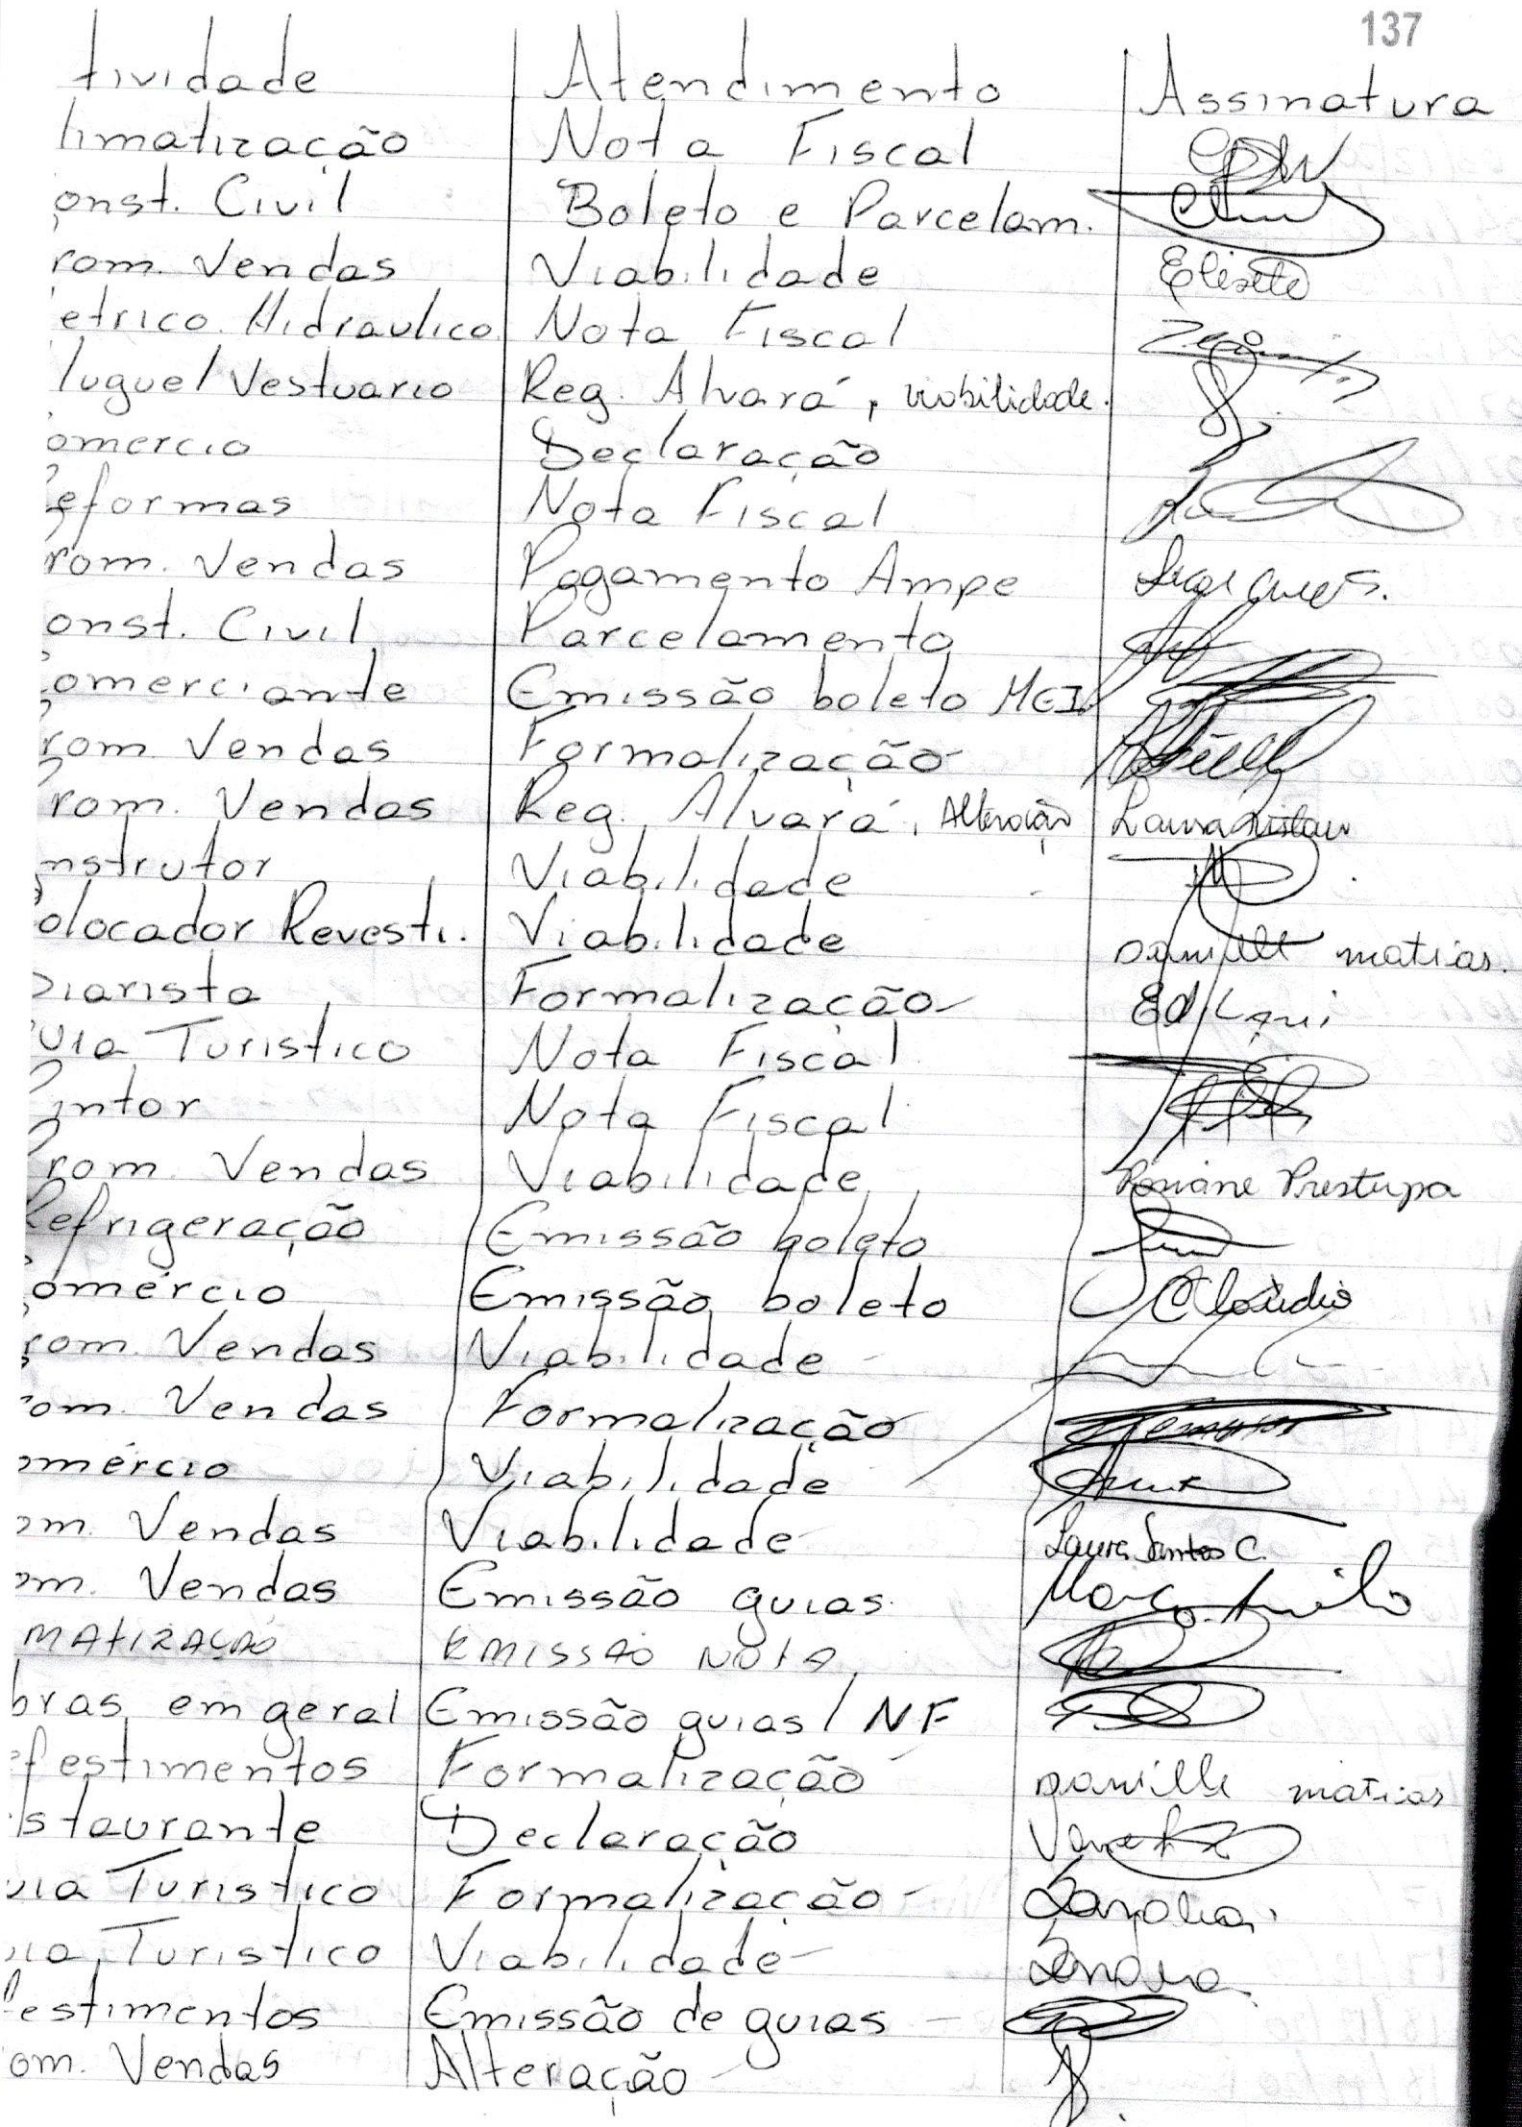 137
tividade Atendimento Assinatura
limatização Nota Fiscal
onst. Civil Boleto e Parcelam.
rom. Vendas Viabilidade Elisete
etrico. Hidraulico Nota Fiscal
luguel Vestuario Reg. Alvará, viabilidade.
omercio Declaração
Reformas Nota Fiscal
rom. Vendas Pagamento Ampe
onst. Civil Parcelamento
Comerciante Emissão boleto MEI
rom. Vendas Formalização
Prom. Vendas Reg. Alvará, Alteração Laura
nstrutor Viabilidade
olocador Revesti. Viabilidade Danielle matias.
Diarista Formalização
uia Turistico Nota Fiscal
Pintor Nota Fiscal
Prom. Vendas Viabilidade Rosiane Prestupa
Refrigeração Emissão boleto
omércio Emissão boleto Claudio
rom. Vendas Viabilidade
om. Vendas Formalização
omércio Viabilidade
om. Vendas Viabilidade Laura Santos C.
om. Vendas Emissão guias Marco
MATIZAÇÃO EMISSÃO NOTA
bras em geral Emissão guias / NF
festimentos Formalização Danielle matias
staurante Declaração
uia Turistico Formalização
uia Turistico Viabilidade
festimentos Emissão de guias
om. Vendas Alteração